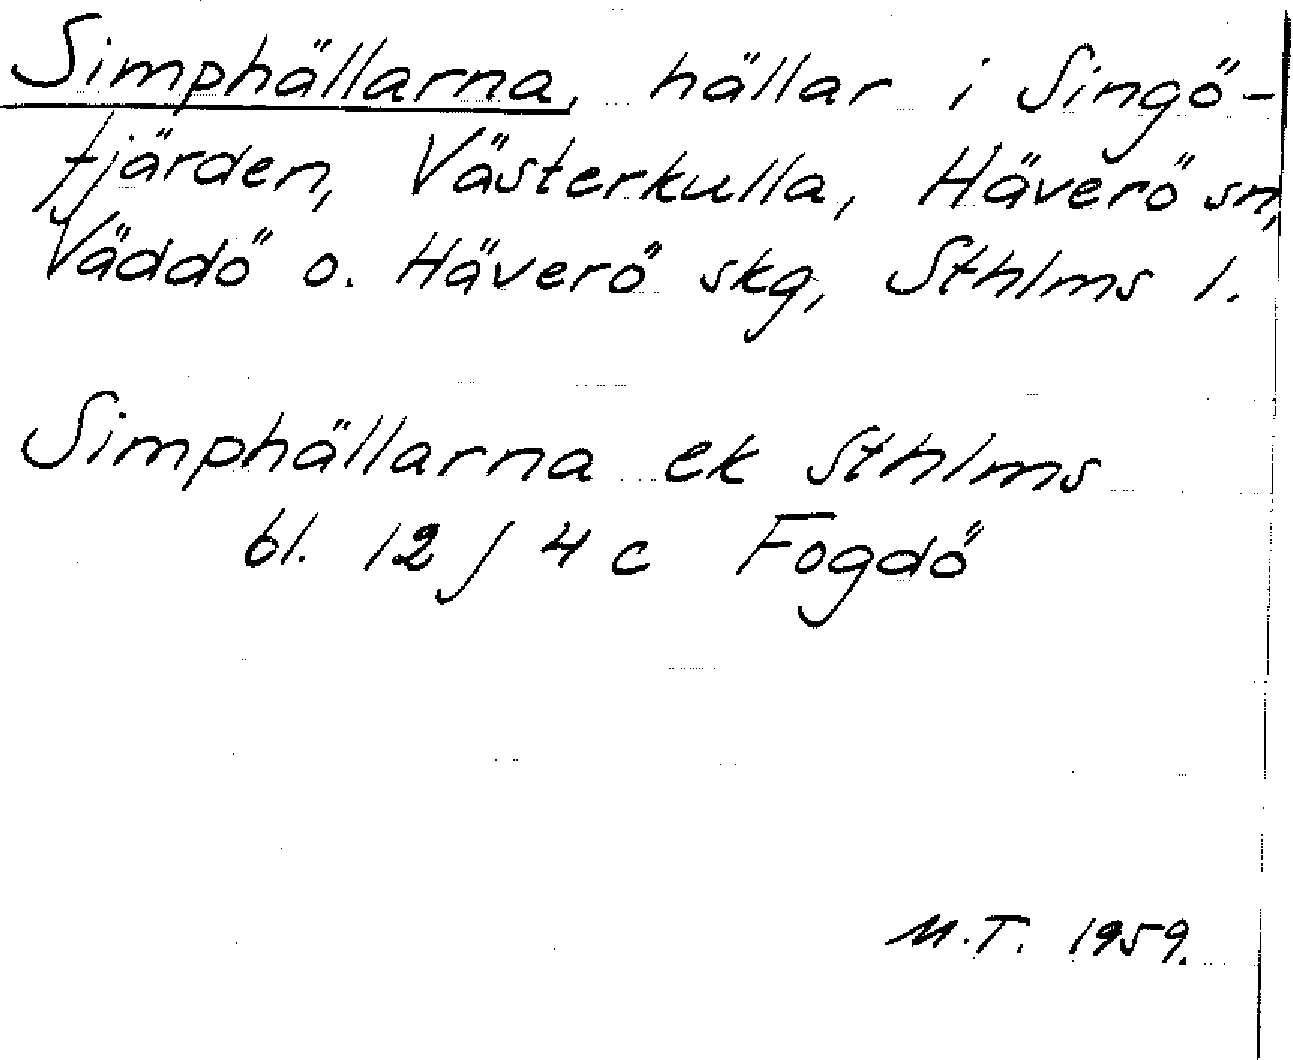 Simphällarna, hällar i Singö-
fjärden, Västerkulla, Häverö sn,
Väddö o. Häverö skg, Sthlms l.
Simphällarna ek Sthlms
bl. 12 J 4 c Fogdö
M.T. 1959.